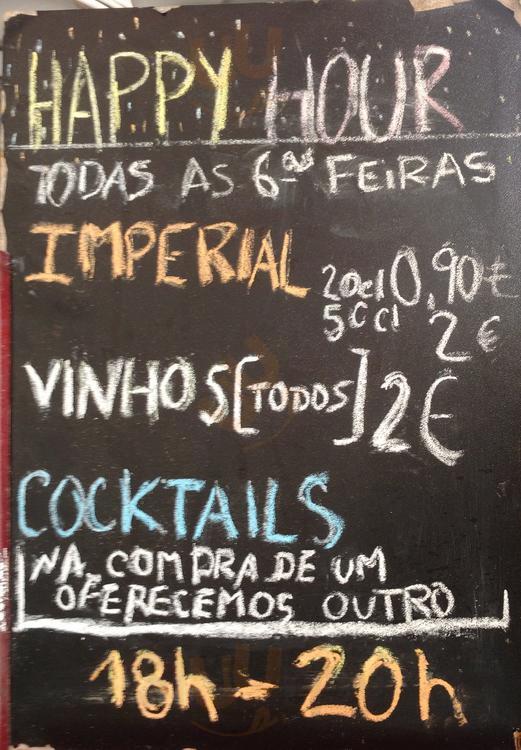 HAPPY HOUR
TODAS AS 6as FEIRAS
IMPERIAL 20cl 0,90€
50cl 2€
VINHOS [TODOS] 2€
COCKTAILS
NA COMPRA DE UM
OFERECEMOS OUTRO
18h - 20h